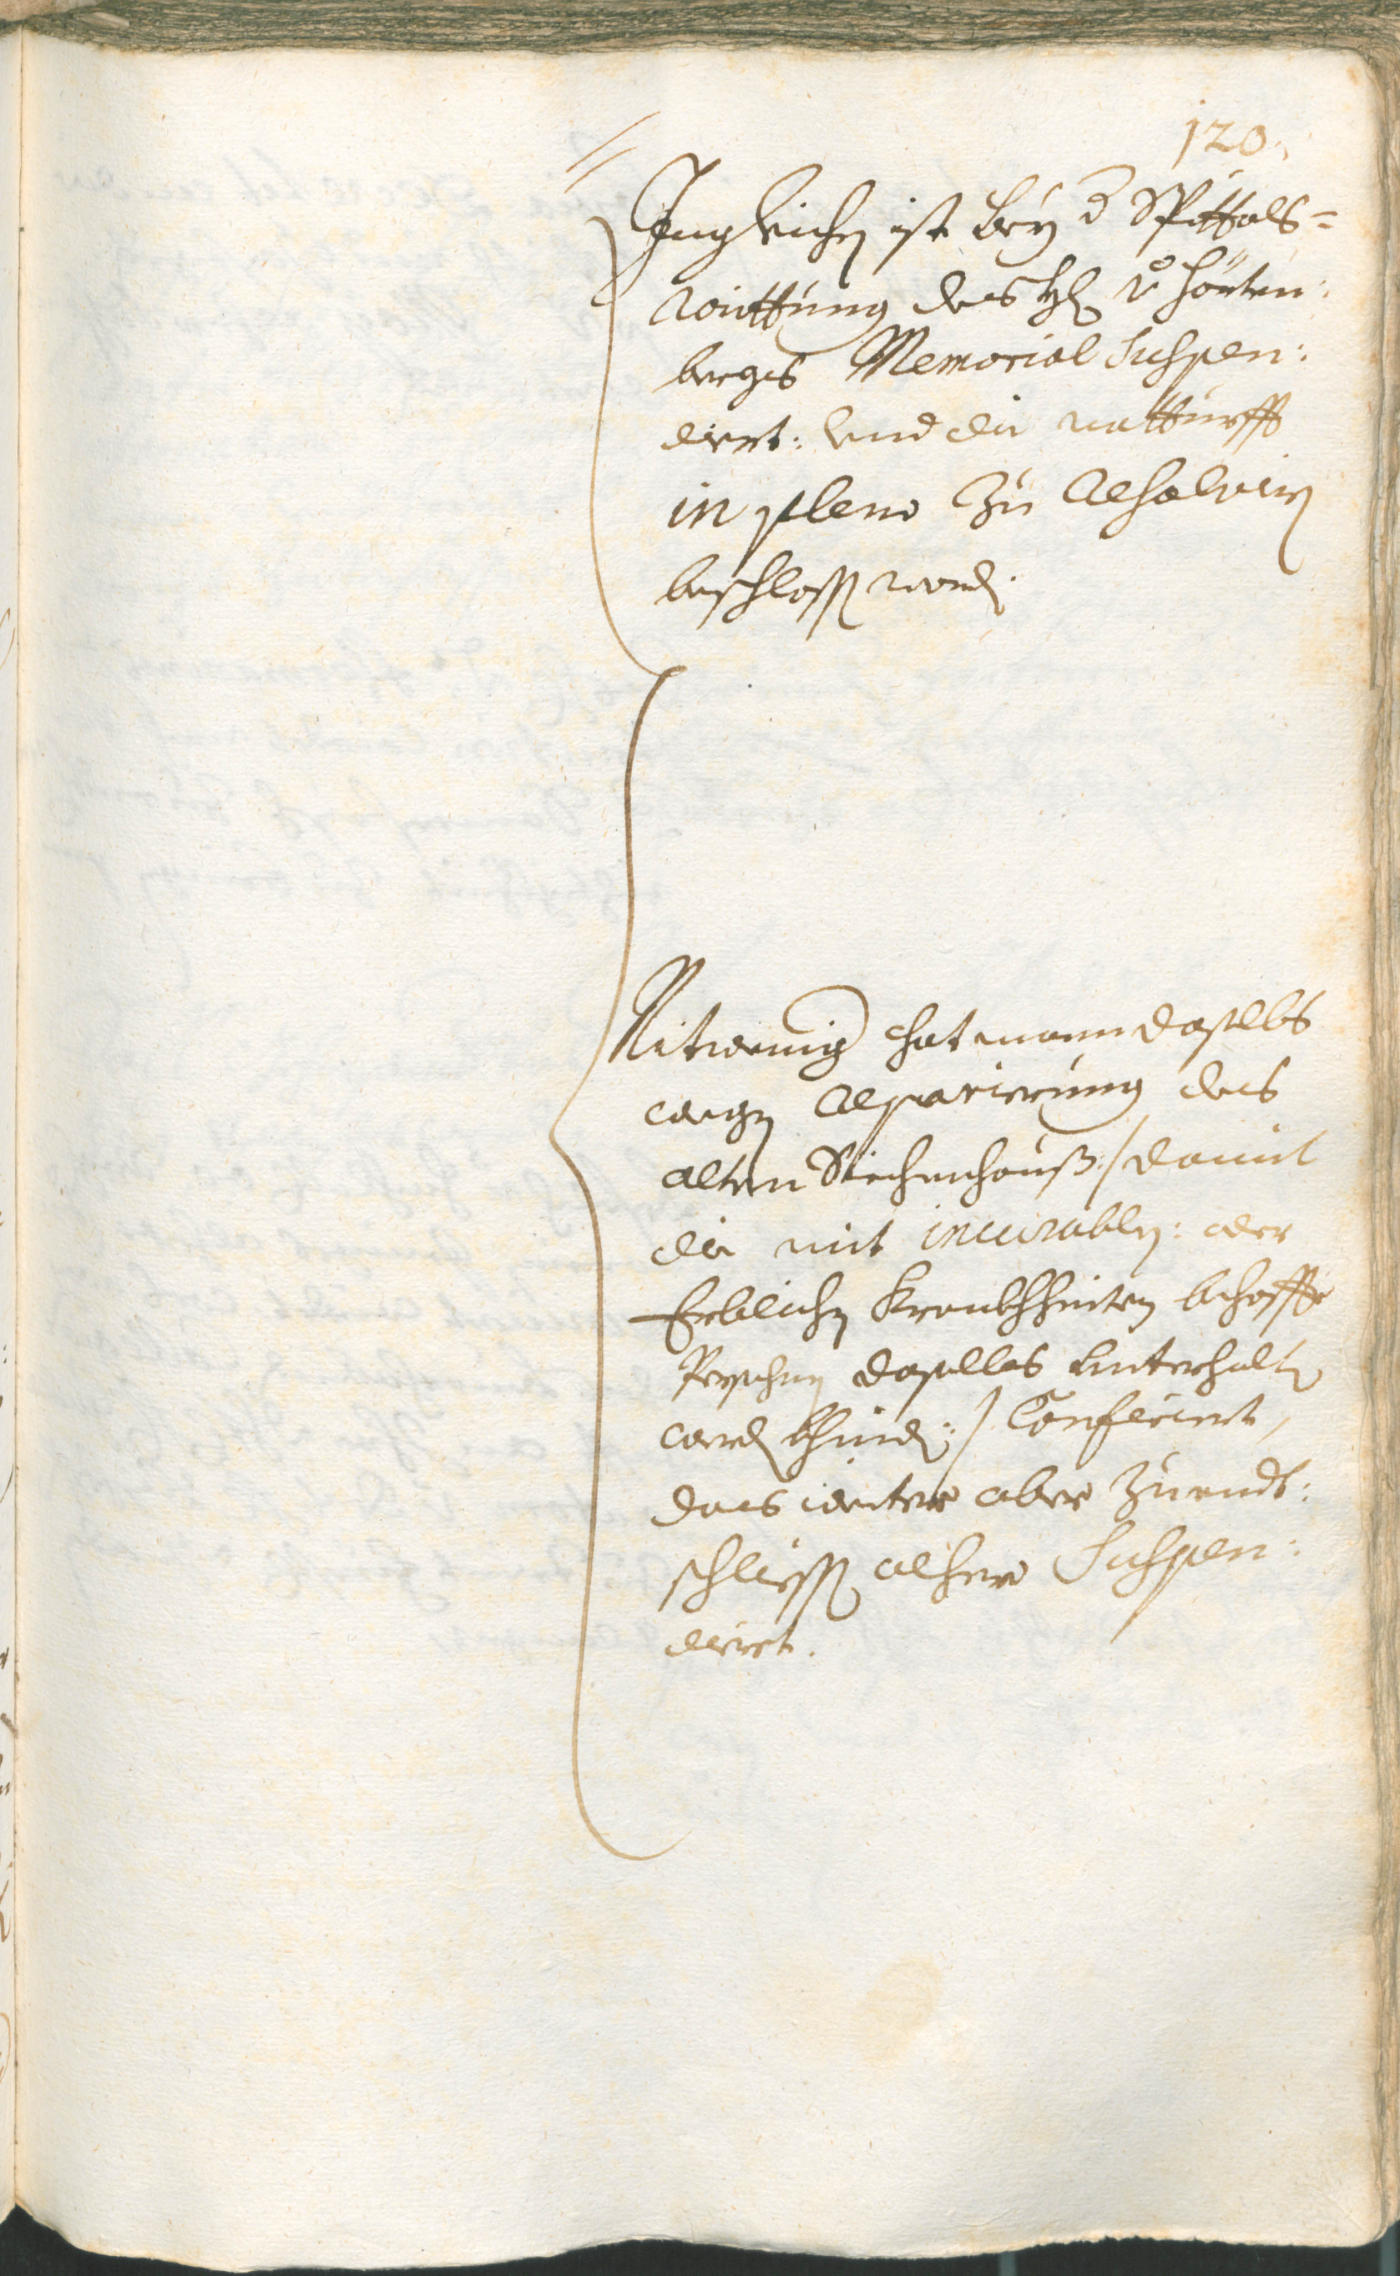 120.
Ingleichen ist bey d Spittals=
Raittung des H: v: Hörten:
bergs Memorial suspen:
diert: und die notturfft
in pleno zu resolvirn
beschlossen worden.
Nitwenig hat mann daselbs
wegen reparierung des
alten Siechenhauß /: damit
die mit incurablen: oder
Erblichen Kranckhheiten behaffte
Persohnen daselbs unterhalten
werden khinden :/ Conferiert,
das weiter aber zu endt:
schliessen alhero suspen:
diert.